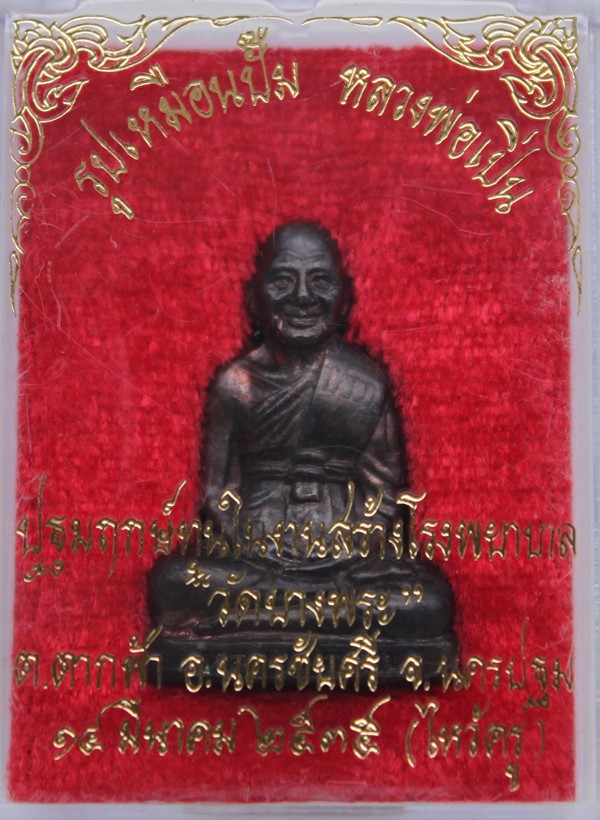 รูปเหมือนปั๊ม หลวงพ่อเปิ่น
ปฐมฤกษ์ทุนในงานสร้างโรงพยาบาล
"วัดบางพระ"
ต.ตากฟ้า อ.นครชัยศรี จ.นครปฐม
๑๔ มีนาคม ๒๕๓๕ (ไหว้ครู)